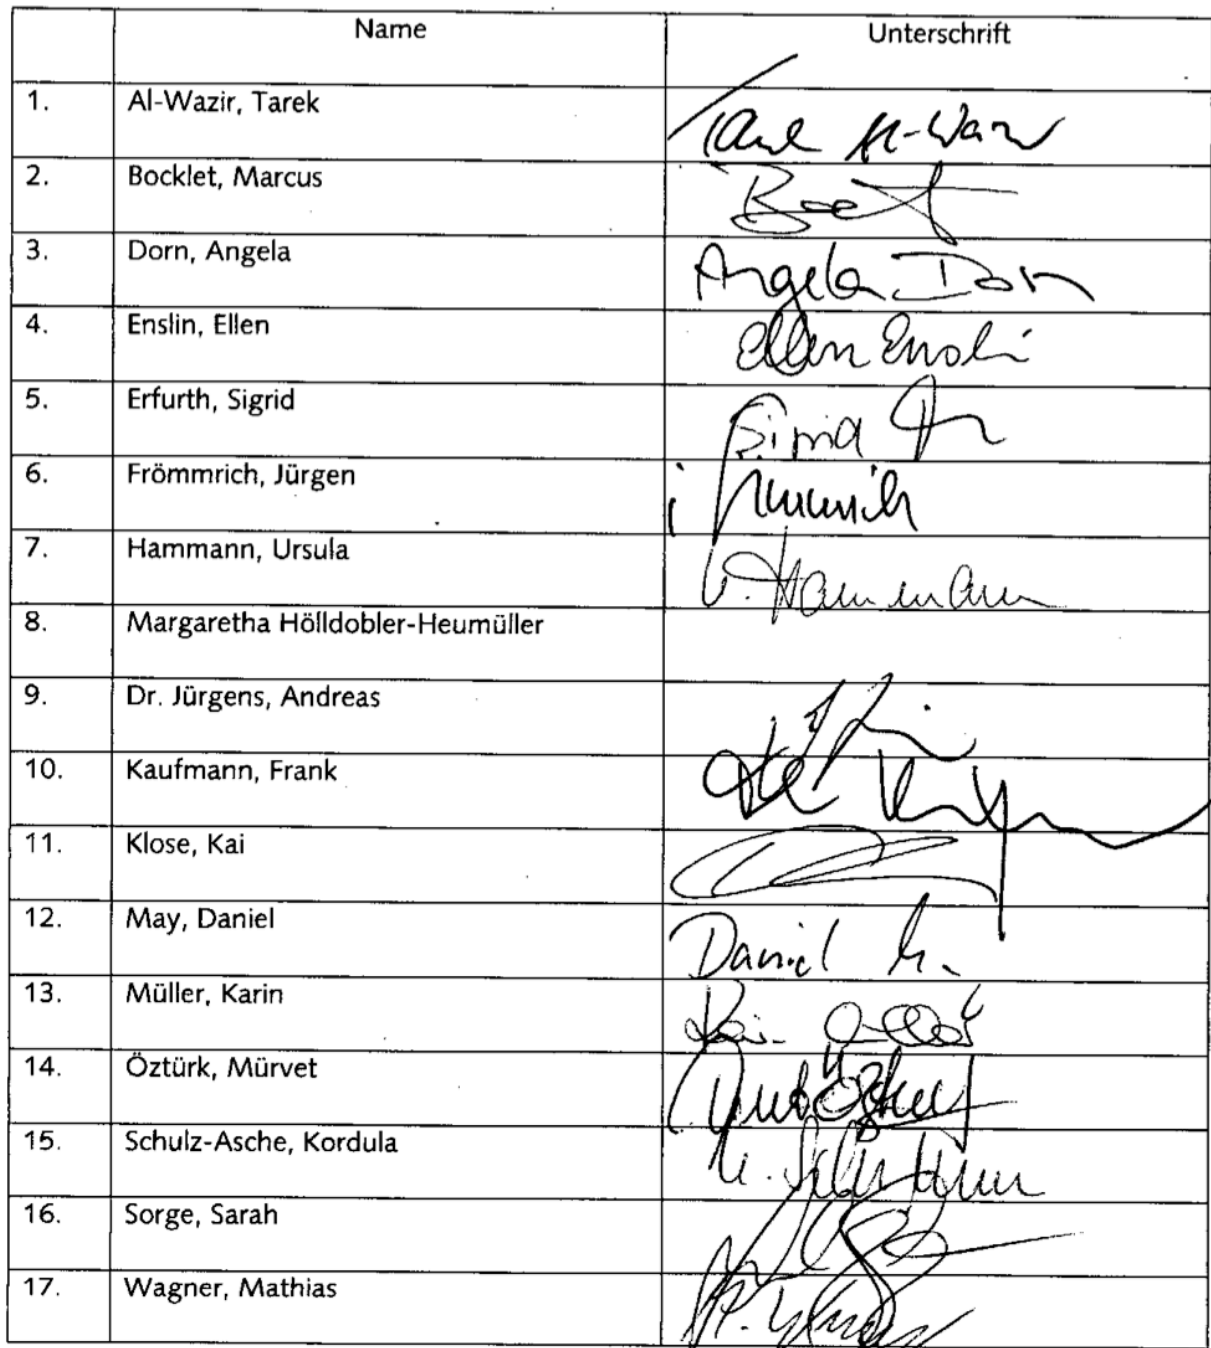 Name Unterschrift
1. Al-Wazir, Tarek Tarek Al-Wazir
2. Bocklet, Marcus
3. Dorn, Angela Angela Dorn
4. Enslin, Ellen Ellen Enslin
5. Erfurth, Sigrid
6. Frömmrich, Jürgen
7. Hammann, Ursula U. Hammann
8. Margaretha Hölldobler-Heumüller
9. Dr. Jürgens, Andreas
10. Kaufmann, Frank
11. Klose, Kai
12. May, Daniel Daniel M.
13. Müller, Karin
14. Öztürk, Mürvet
15. Schulz-Asche, Kordula
16. Sorge, Sarah
17. Wagner, Mathias